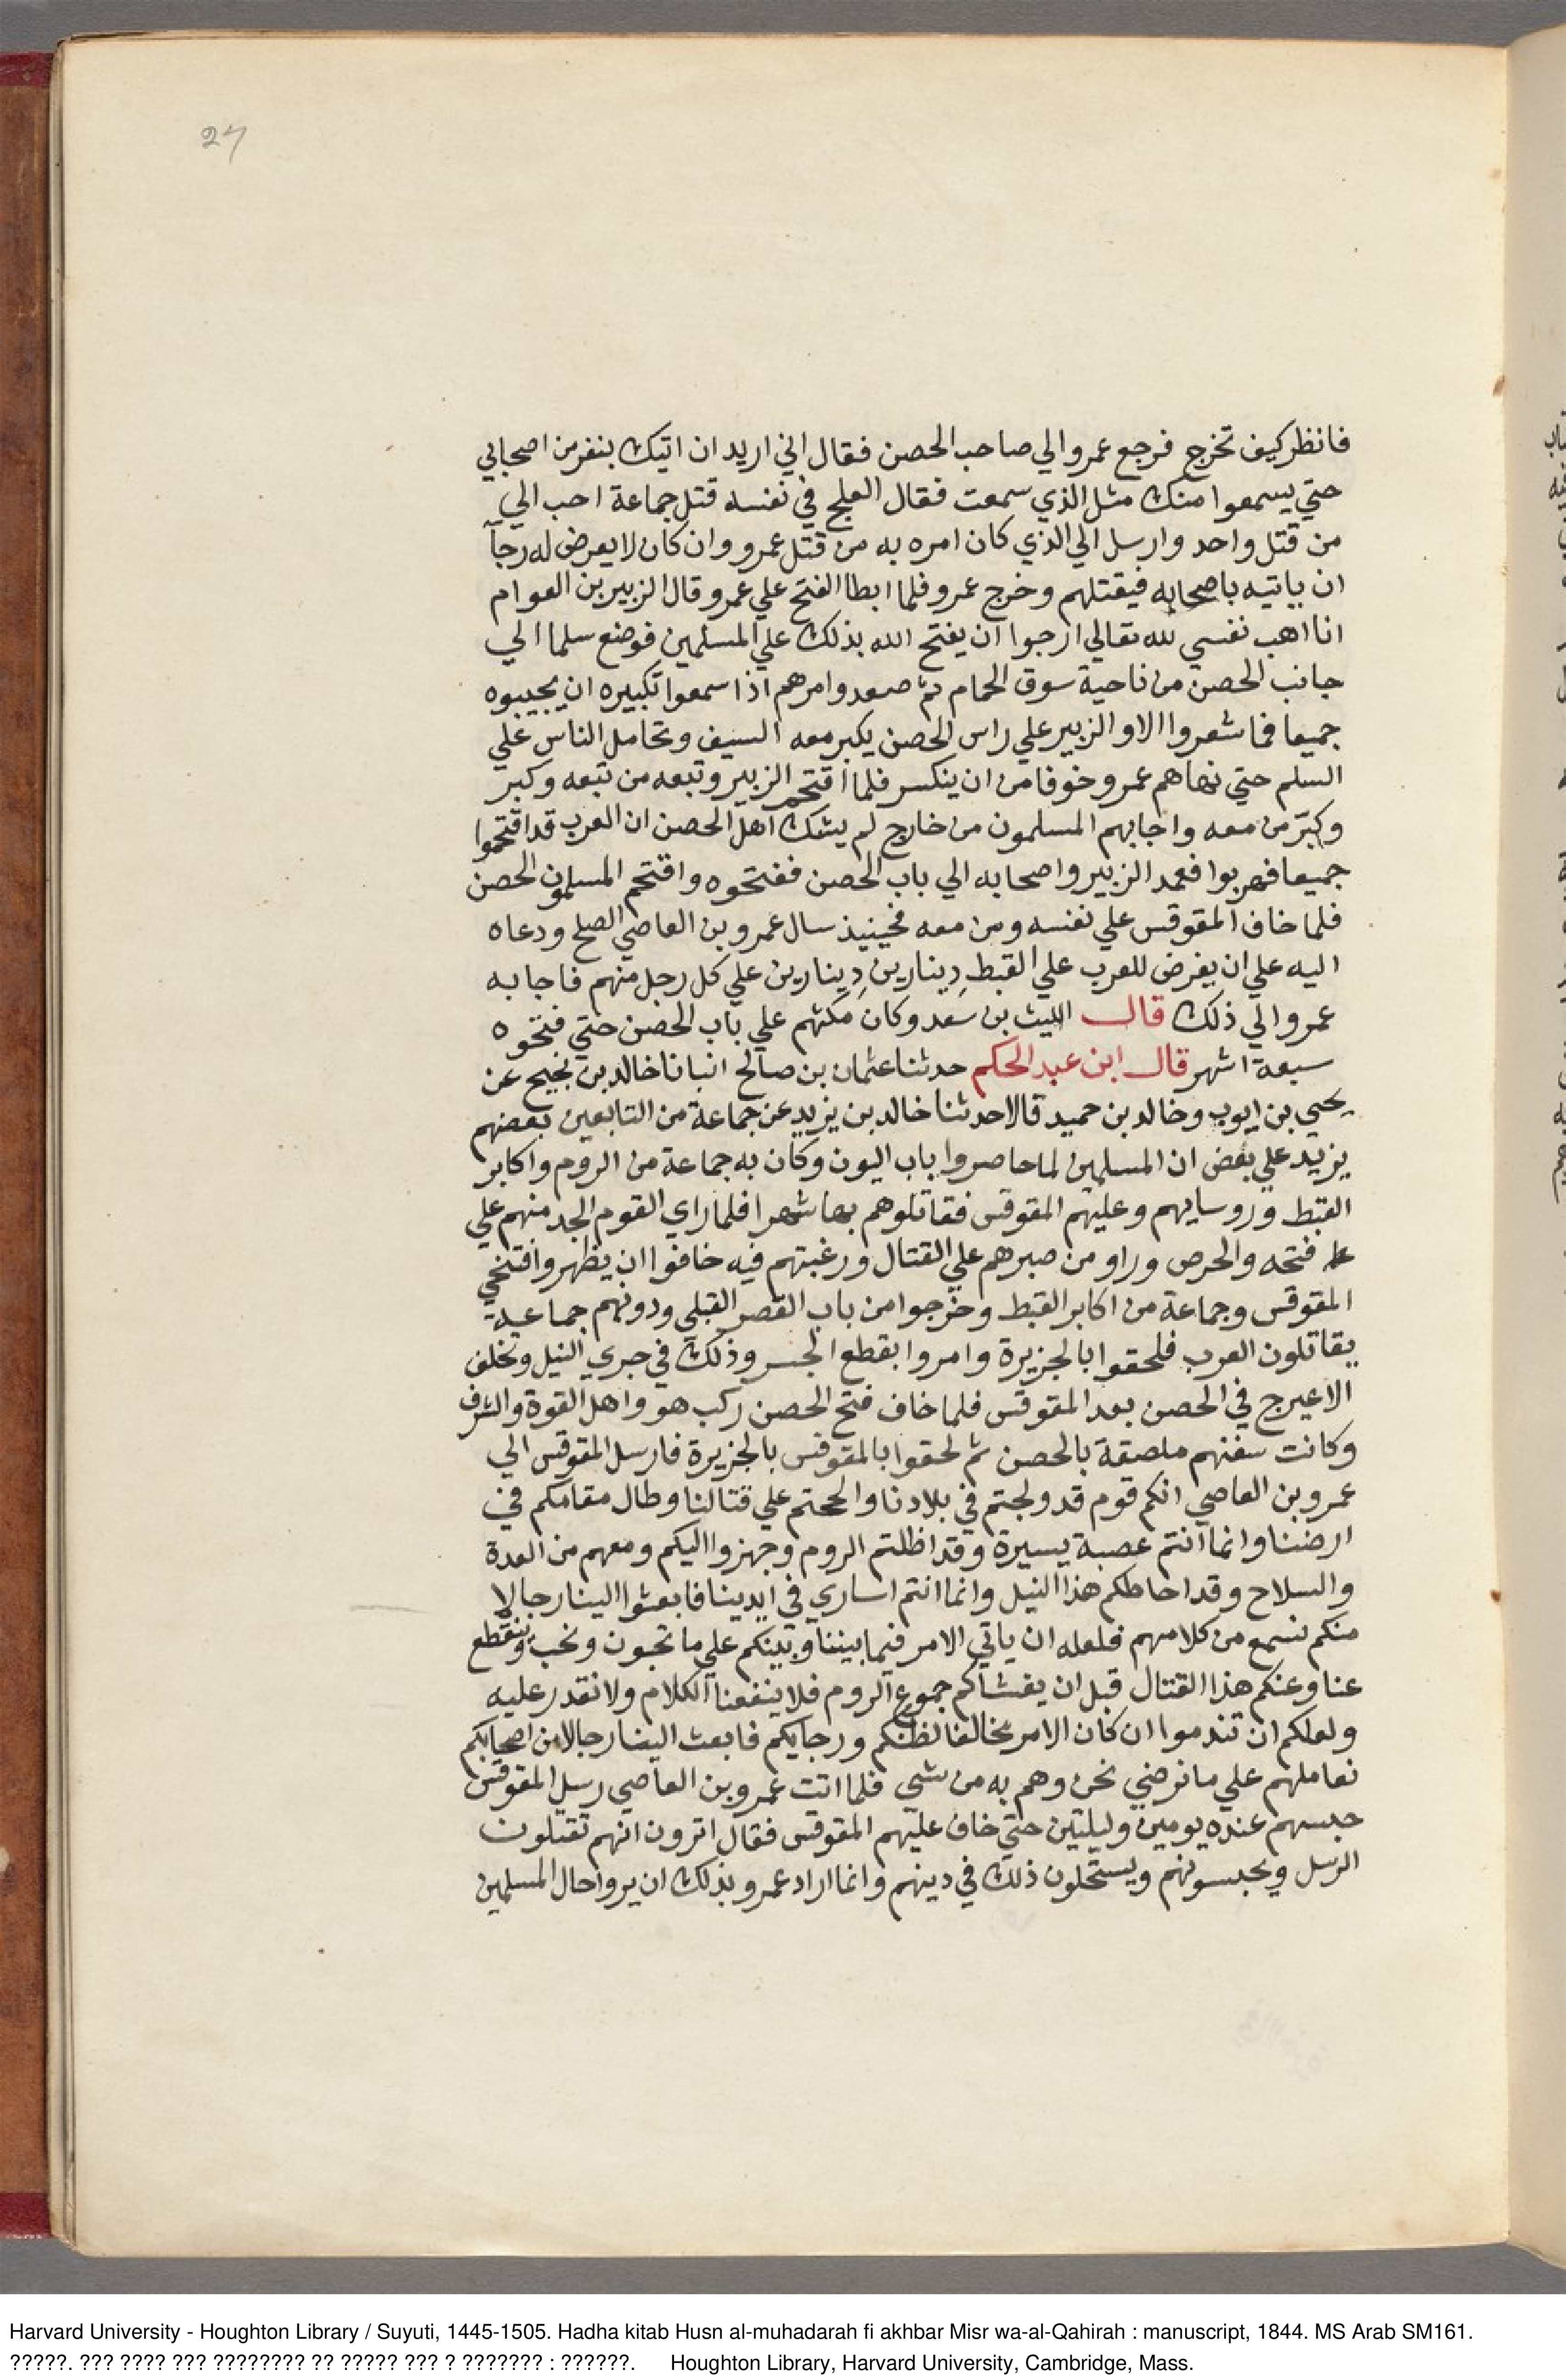 27
فانظر كيف تخرج فرجع عمرو الي صاحب الحصن فقال اني اريد ان اتيك بنفر من اصحابي
حتي يسمعوا منك مثل الذي سمعت فقال العلج في نفسه قتل جماعة احب الي
من قتل واحد وارسل الي الذي كان امره به من قتل عمرو وان كان لا يعرض له رجآ
ان ياتيه باصحابه فيقتلهم وخرج عمرو فلما ابطا الفتح علي عمرو قال الزبير بن العوام
انا اهب نفسي لله تعالي ارجوا ان يفتح الله بذلك علي المسلمين فوضع سلما الي
جانب الحصن من ناحية سوق الحمام ثم صعد وامرهم اذا سمعوا تكبيره ان يجيبوه
جميعا فما شعروا الا والزبير علي راس الحصن يكبر معه السيف وتحامل الناس علي
السلم حتي نهاهم عمرو خوفا من ان ينكسر فلما اقتحم الزبير وتبعه من تبعه وكبر
وكبّر من معه واجابهم المسلمون من خارج لم يشك اهل الحصن ان العرب قد اقتحموا
جميعا فهربوا فعمد الزبير واصحابه الي باب الحصن ففتحوه واقتحم المسلمون الحصن
فلما خاف المقوقس علي نفسه ومن معه فحينيذ سال عمرو بن العاصي الصلح ودعاه
اليه علي ان يفرض للعرب علي القبط دينارين دينارين علي كل رجل منهم فاجابه
عمرو الي ذلك قال الليث بن سَعد وكان مكثهم علي باب الحصن حتي فتحوه
سبعة اشهر قال ابن عبد الحكم حدثنا عثمان بن صالح انبانا خالد بن نجيح عن
يحيي بن ايوب وخالد بن حميد قالا حدثنا خالد بن يزيد عن جماعة من التابعين بعضهم
يزيد علي بعض ان المسلمين لما حاصروا باب اليون وكان به جماعة من الروم واكابر
القبط وروسايهم وعليهم المقوقس فقاتلوهم بها شهرا فلما راي القوم الجد منهم علي
فتحه والحرص وراو من صبرهم علي القتال ورغبتهم فيه خافوا ان يظهروا فتنحي
المقوقس وجماعة من اكابر القبط وخرجوا من باب القصر القبلي ودونهم جماعة
يقاتلون العرب فلحقوا بالجزيرة وامروا بقطع الجسر وذلك في جري النيل وتخلف
الاعيرج في الحصن بعد المقوقس فلما خاف فتح الحصن ركب هو واهل القوة والشرف
وكانت سفنهم ملصقة بالحصن ثم لحقوا بالمقوقس بالجزيرة فارسل المقوقس الي
عمرو بن العاصي انكم قوم قد ولجتم في بلادنا والححتم علي قتالنا وطال مقامكم في
ارضنا وانما انتم عصبة يسيرة وقد اظلتم الروم وجهزوا اليكم ومعهم من العدة
والسلاح وقد احاطكم هذا النيل وانما انتم اساري في ايدينا فابعثوا الينا رجالا
منكم نسمع من كلامهم فلعله ان ياتي الامر فيما بيننا وبينكم علي ما تحبون ونحب وينقطع
عنا وعنكم هذا القتال قبل ان يغشاكم جموع الروم فلا ينفعنا الكلام ولا نقدر عليه
ولعلكم ان تندموا ان كان الامر مخالفا لظنكم ورجايكم فابعث الينا رجالا من اصحابكم
نعاملهم علي ما نرضي نحن وهم به من شي فلما اتت عمرو بن العاصي رسل المقوقس
حبسهم عنده يومين وليلتين حتي خاف عليهم المقوقس فقال اترون انهم تقتلون
الرسل ويحبسونهم ويستحلون ذلك في دينهم وانما اراد عمرو بذلك ان يروا حال المسلمين
Harvard University - Houghton Library / Suyuti, 1445-1505. Hadha kitab Husn al-muhadarah fi akhbar Misr wa-al-Qahirah : manuscript, 1844. MS Arab SM161.
?????. ??? ???? ??? ???????? ?? ????? ??? ? ??????? : ??????. Houghton Library, Harvard University, Cambridge, Mass.